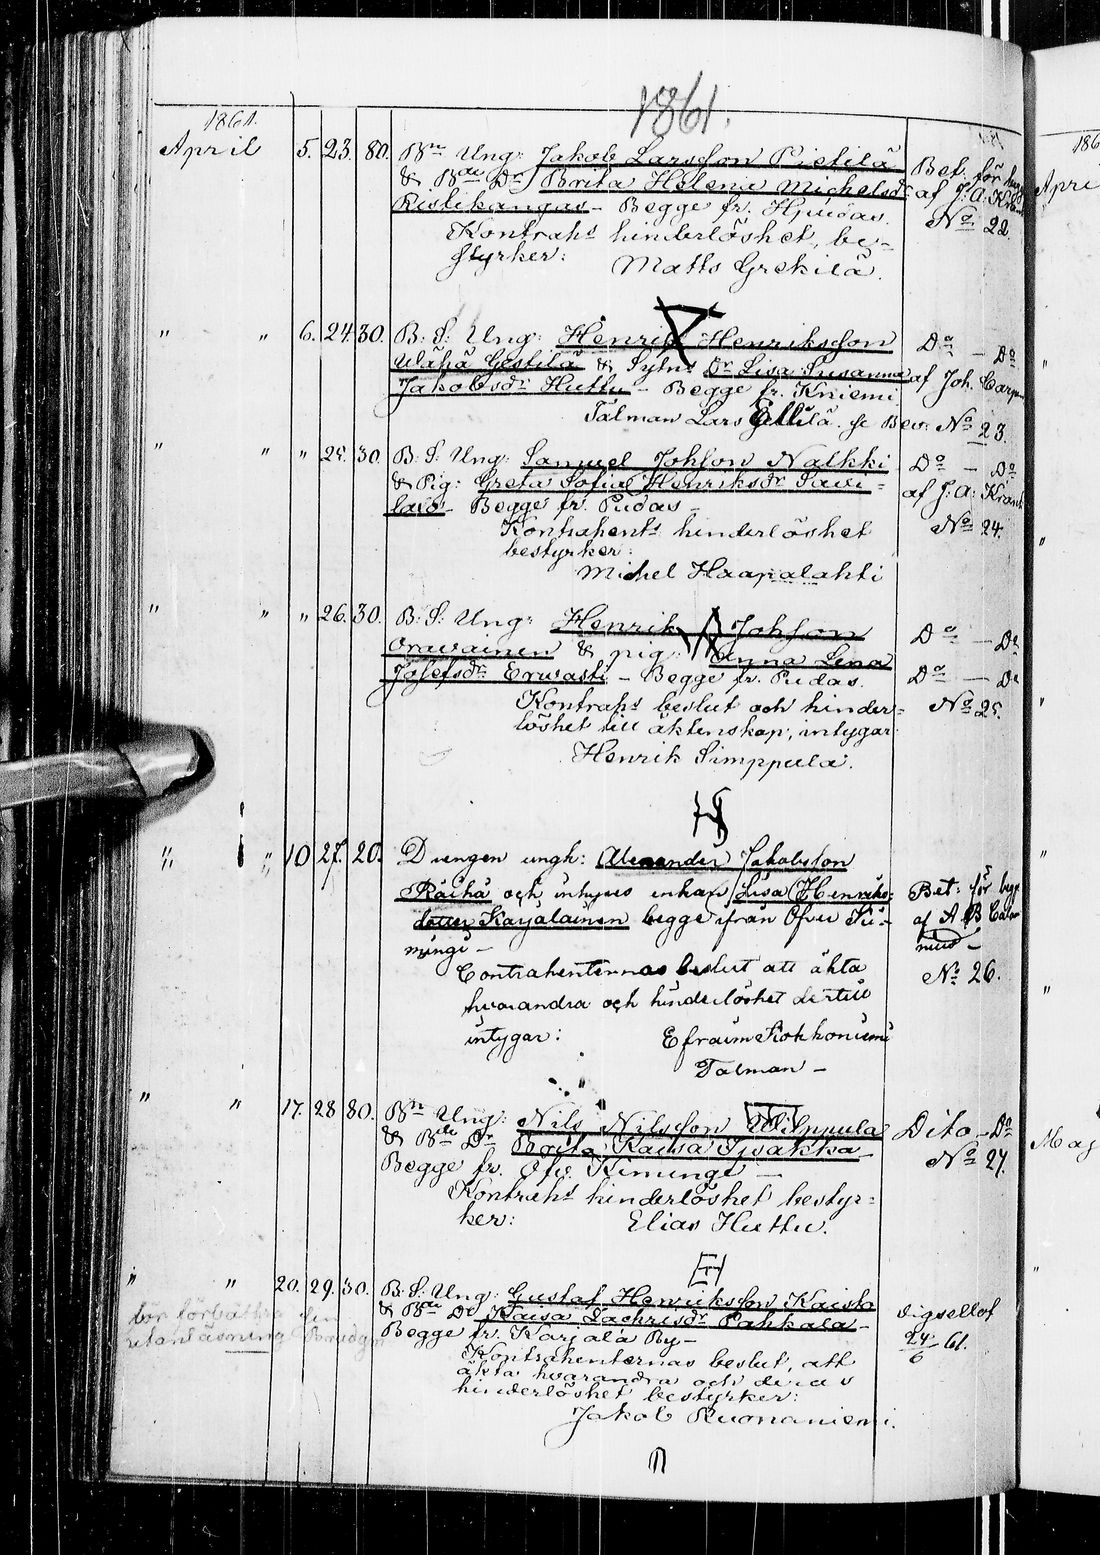 1861.
1861.
April 5. 23. 80. Bn Ung: Jakob Larsson Pietilä
& Bde Dr Brita Helena Michelsdr
Ristikangas – Begge fr. Hjudas.
Kontrahs hinderlöshet, be-
styrker: Matts Grekilä.
Bet. för
af J: A:
No 22.
" " 6. 24. 30. B: S: Ung: Henrik Henriksson
Wähä Gestilä & Sytn: Dr Lisa Susanna
Jakobsdr Huttu – Begge fr. Kniemi
Talman Lars
Do – Do
af Joh.
No 23.
" " " 25. 30. B: S: Ung: Samuel Johsson Nalkki
& Pig: Greta Sofia Henriksdr Savi-
laxo – Begge fr. Pudas –
Kontrahents hinderlöshet
bestyrker:
Michel Haapalahti
Do – Do
af J: A:
No 24.
" " " 26. 30. B: S: Ung: Henrik Johsson
Orawainen & pig: Anna Lena
Josefsdr Erwasti – Begge fr. Pudas.
Kontrahs beslut och hinder-
löshet till äktenskap, intygar
Henrik Simppula.
Do – Do
Do – Do
No 25.
" " 10 27. 20. Drengen ungk: Alexander Jakobsson
Räihä och inhyses enkan Lisa Henriks-
dotter Karjalainen begge ifrån Öfver Ki-
mingi –
Contrahenternas beslut att äkta
hvarandra och hinderlöshet dertill
intygar: Efraim Kokkoniemi
Talman –
Bet: för
af A B
No 26.
" " 17. 28 80. Bn Ung: Nils Nilsson Wilppula
& Bde Dr Brita Kaisa Isakka
Begge fr. Öfv. Kiminge –
Kontrahs hinderlöshet bestyr-
ker: Elias Huttu.
Dito – Do
No 27.
" " 20. 29. 30. B: S: Ung: Gustaf Henriksson Kaisto
& Bde Dr Kaisa Zachrisdr Pahkala –
Begge fr. Karjala By –
Kontrahenternas beslut, att
äkta hvarandra och deras
hinderlöshet bestyrker:
Jakob Ruonaniemi.
Vigsellof
24/6 61.